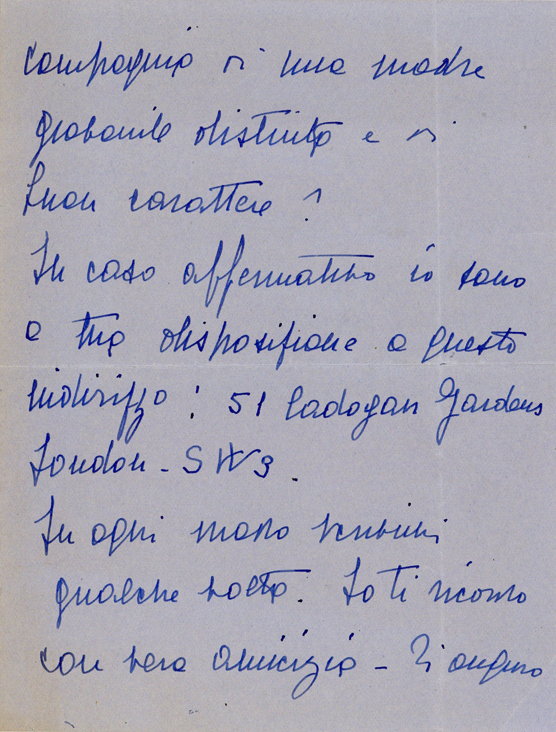 compagnia di una madre
giovanile distinta e di
buon carattere?
In caso affermativo io sono
a tua disposizione a questo
indirizzo: 51 Cadogan Gardens
London - SW3.
In ogni modo scrivimi
qualche volta. Io ti ricordo
con vera amicizia - Ti auguro